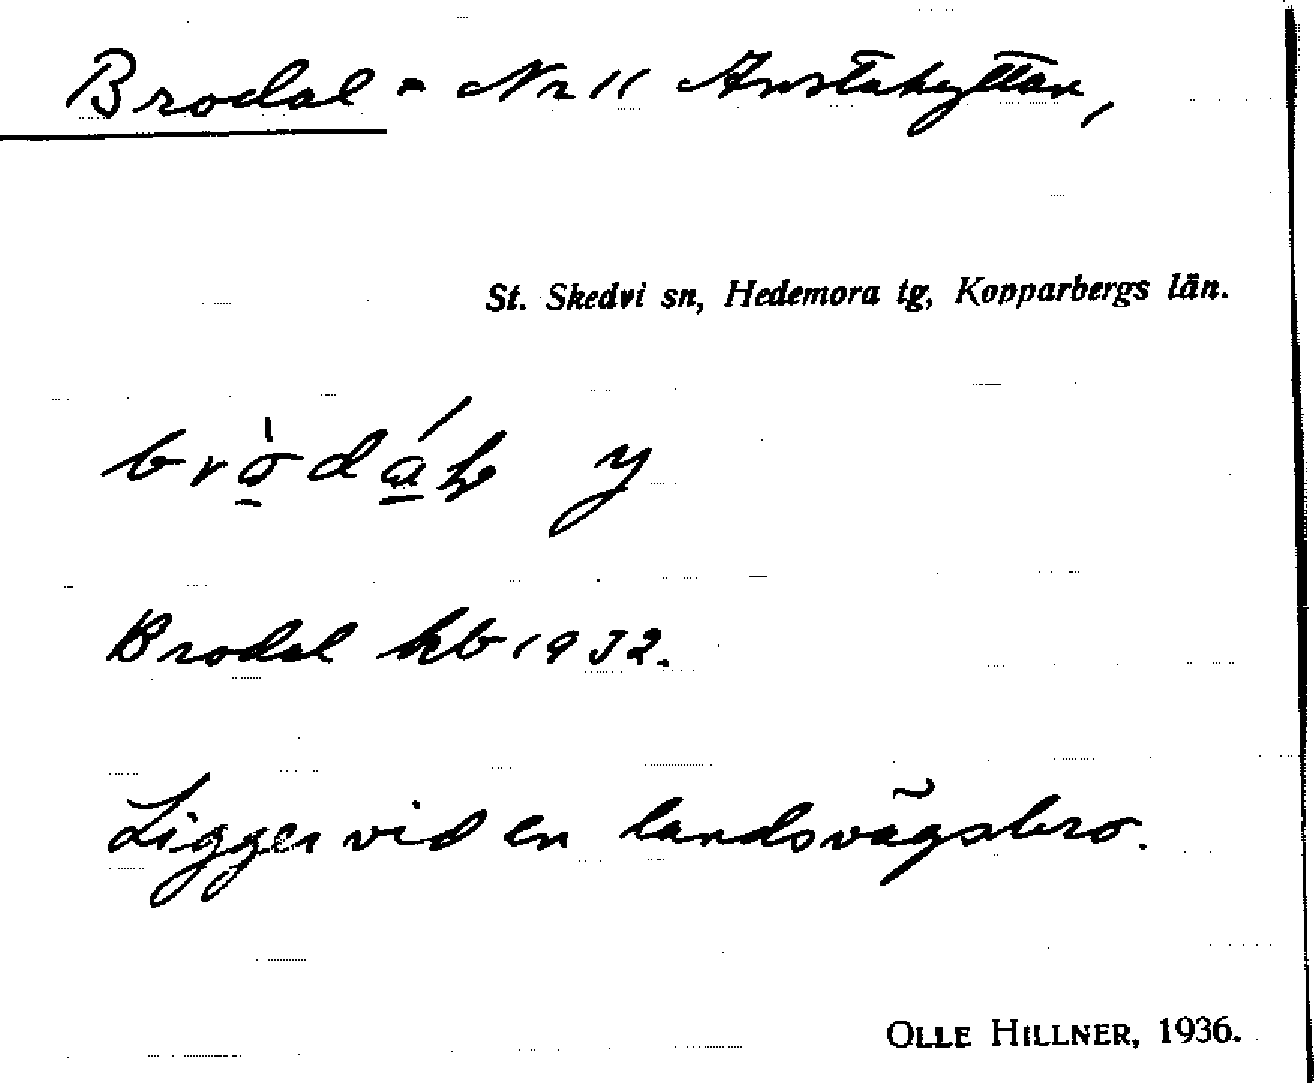 Brodal = Nr 11 Anstahyttan,
St. Skedvi sn, Hedemora tg, Kopparbergs län.
Brodal kb 1932.
Ligger vid en landsvägsbro.
OLLE HILLNER, 1936.